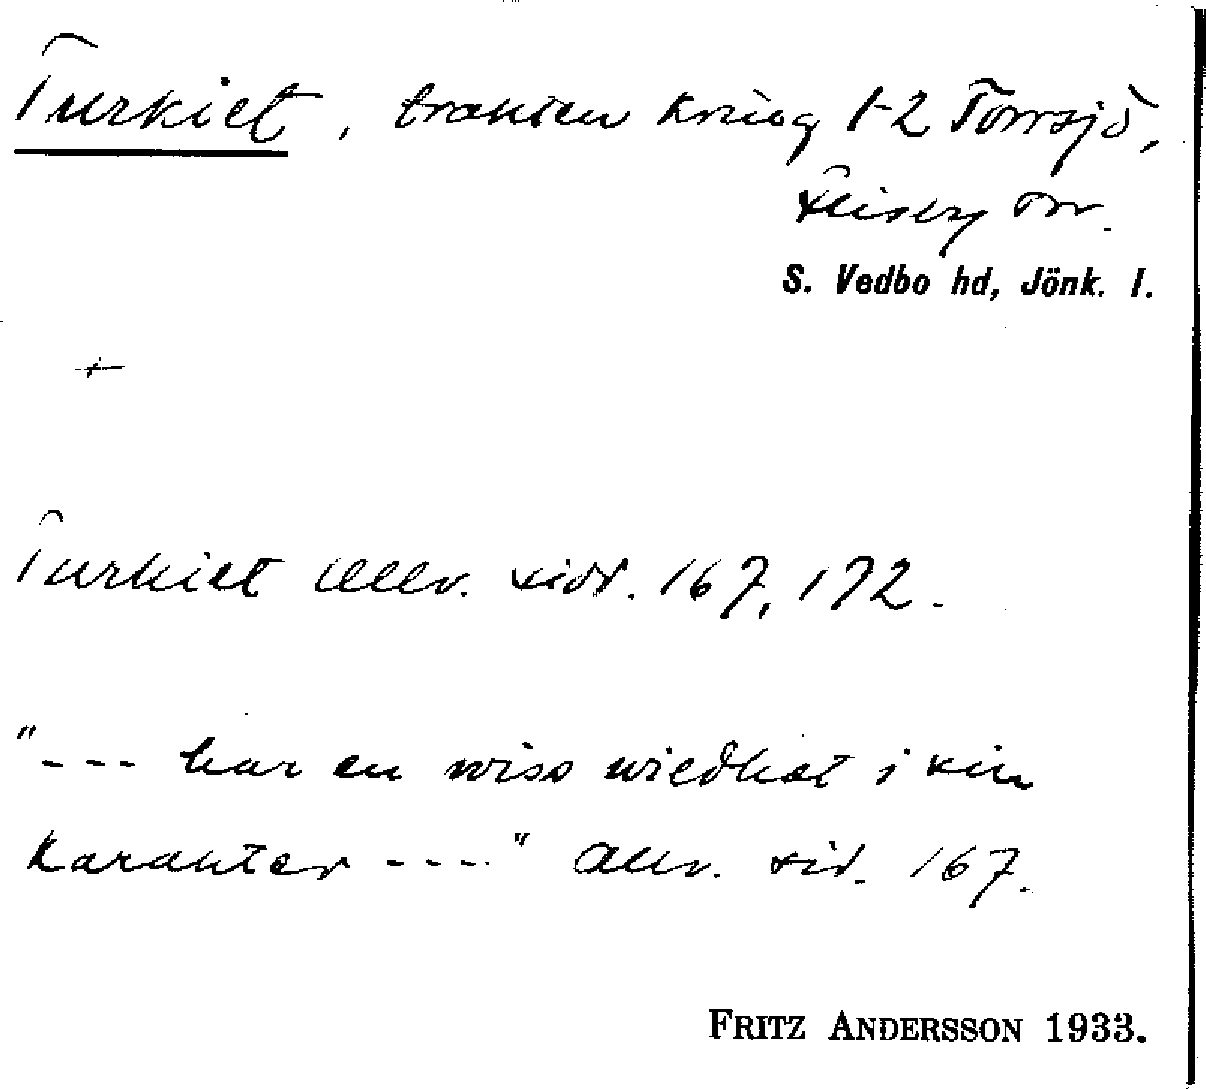 Turkiet, trakten kring 1-2 Torrsjö,
Flisby sn.
S. Vedbo hd, Jönk. l.
+
Turkiet Allv. sidr. 167, 172.
"--- har en viss vildhet i sin
karakter ----" Allv. sid. 167.
FRITZ ANDERSSON 1933.